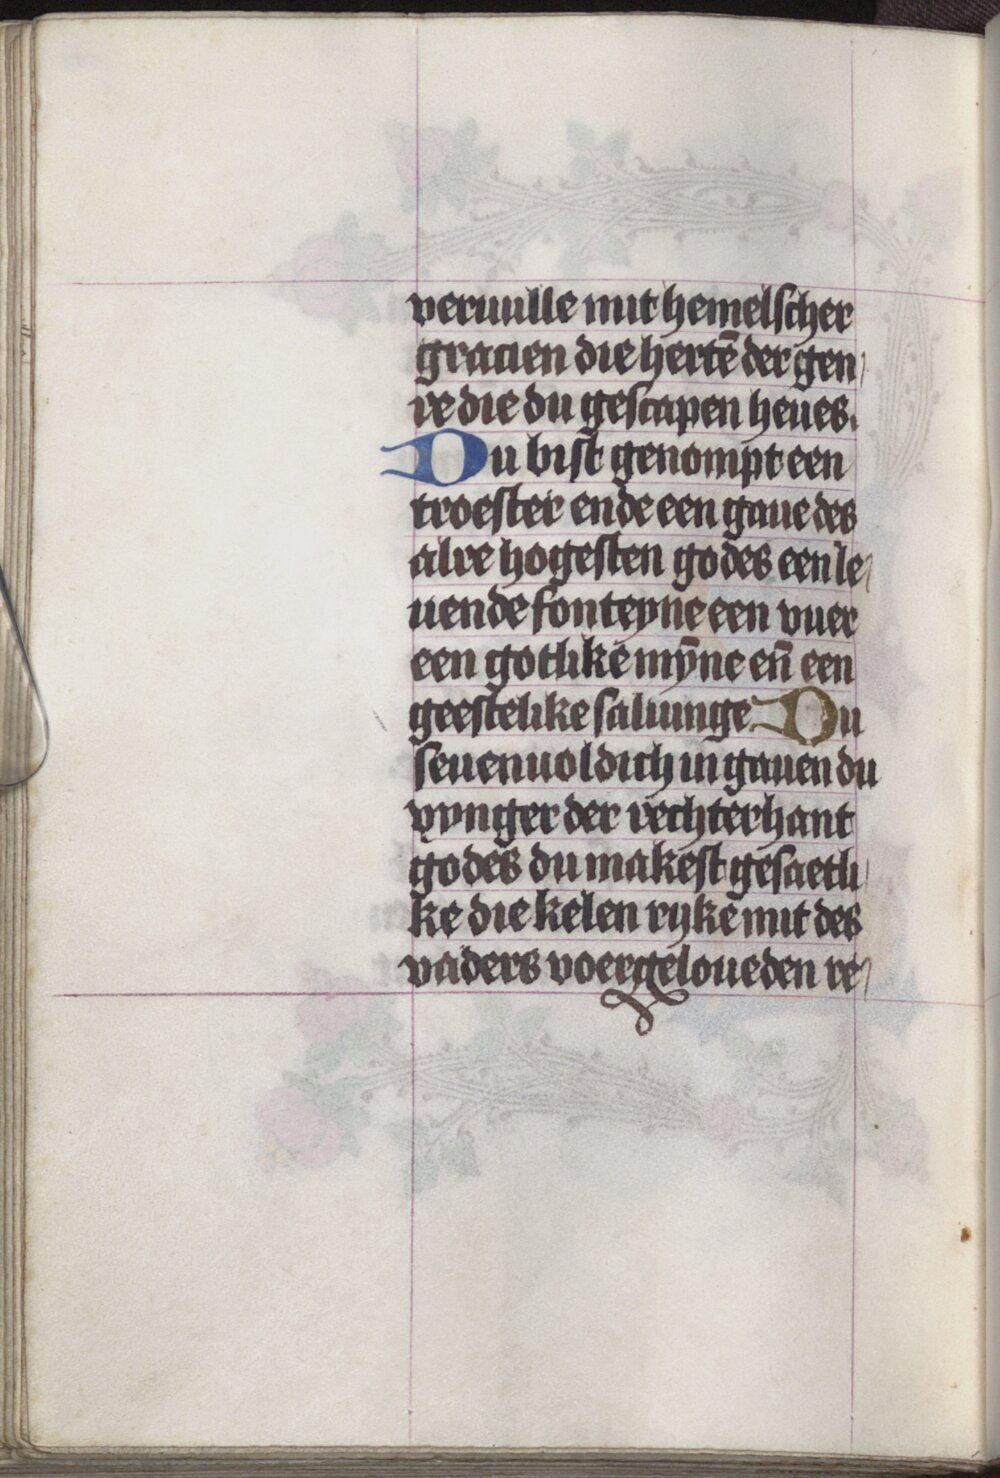 veruulle mit hemelscher
gracien die hertē der gen
re die du gescapen heues.
Du bist genompt een
troester ende een gaue des
alre hogesten godes een le
uende fonteyne een vuer
een gotlike mȳne en̄ een
geestelike saluinge Du
seuenuoldich in gauen du
vynger der rechterhant
godes du makest gesaetli
ke die kelen ryke mit des
vaders voergeloueden re